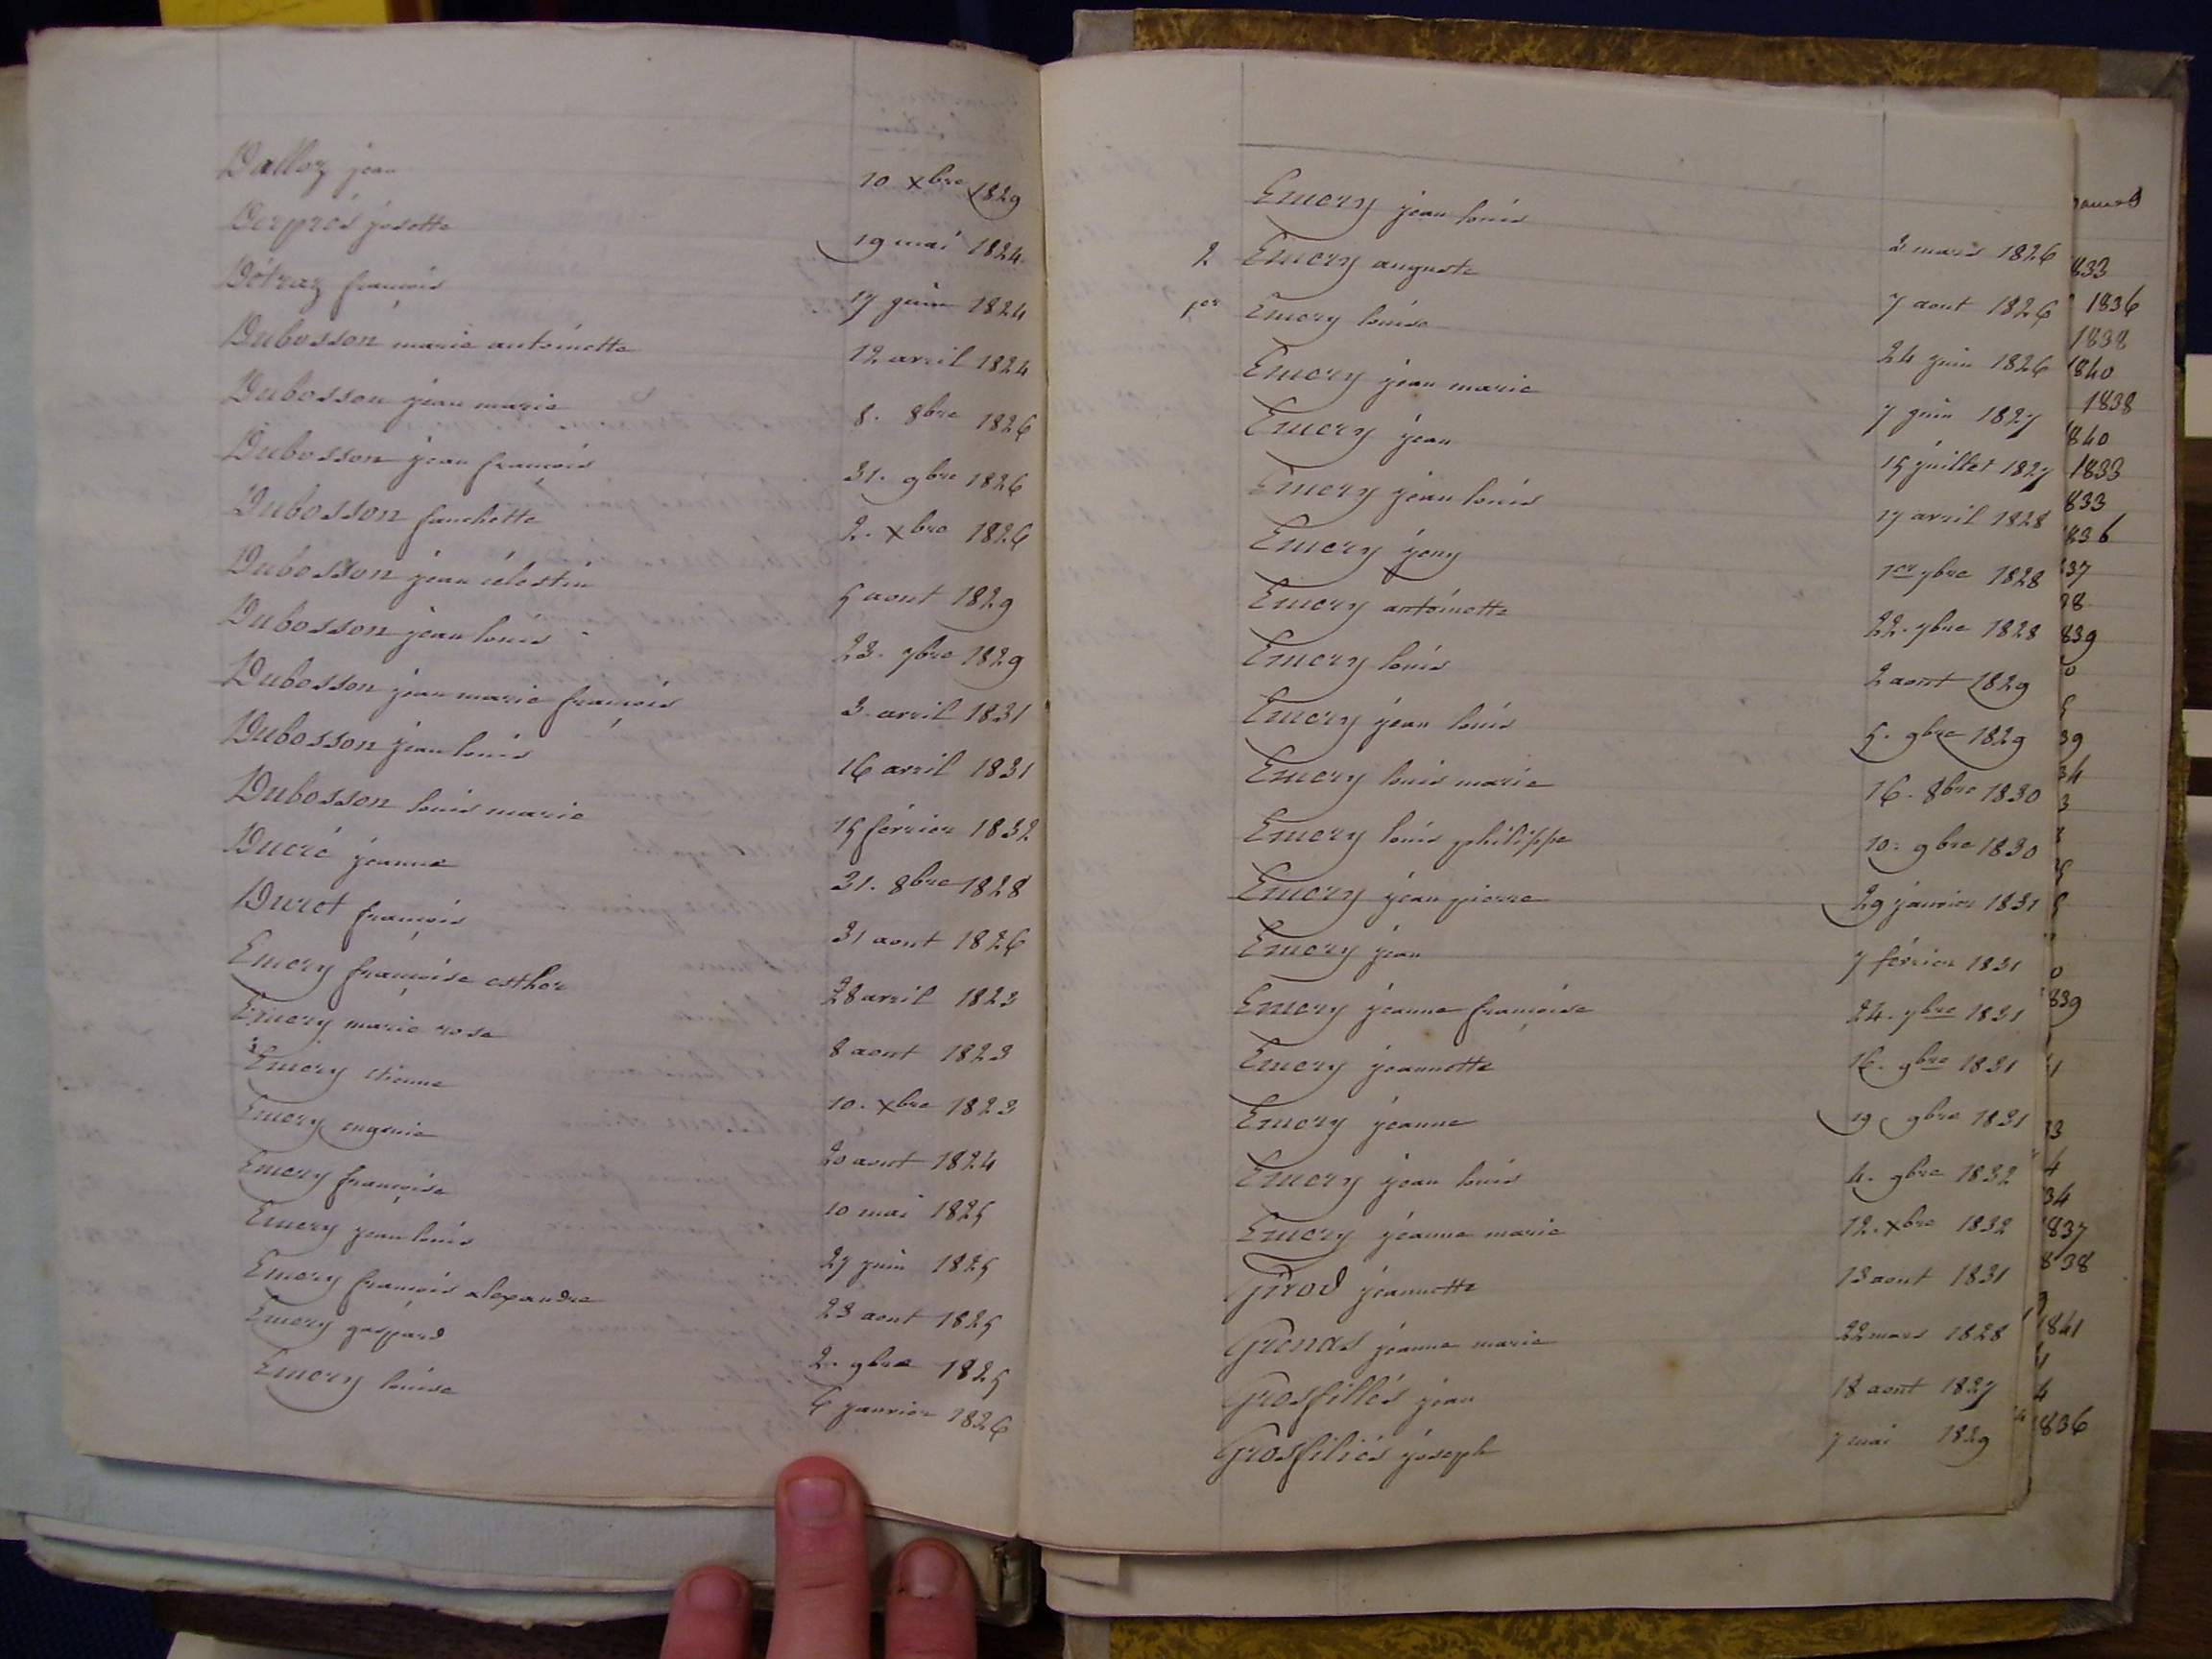 Dalloz jean 10 xbre 1829
Derprés josette 19 mai 1824
Détraz françois 17 juin 1824
Dubosson marie antoinette 12 avril 1824
Dubosson jean marie 8. 8bre 1826
Dubosson jean françois 31. 9bre 1826
Dubosson fanchette 2. xbre 1826
Dubosson jean célestin 5 aout 1829
Dubosson jean louis 23. 7bre 1829
Dubosson jean marie françois 3. avril 1831
Dubosson jean louis 16 avril 1831
Dubosson louis marie 15 février 1832
Ducré jeanne 31. 8bre 1828
Duret françois 31 aout 1826
Emery françoise esther 28 avril 1823
Emery marie rose 8 aout 1823
Emery étienne 10. xbre 1823
Emery eugenie 20 aout 1824
Emery françoise 10 mai 1825
Emery jean louis 27 juin 1825
Emery françois alexandre 23 aout 1825
Emery gaspard 2. 9bre 1825
Emery louise 6 janvier 1826
Emery jean louis 2 mars 1826
2 Emery auguste 7 aout 1826
1er Emery louise 24 juin 1826
Emery jean marie 7 juin 1827
Emery jean 15 juillet 1827
Emery jean louis 17 avril 1828
Emery jeny 1er 7bre 1828
Emery antoinette 22. 7bre 1828
Emery louis 2 aout 1829
Emery jean louis 5. 9bre 1829
Emery louis marie 16. 8bre 1830
Emery louis philippe 10. 9bre 1830
Emery jean pierre 29 janvier 1831
Emery jean 7 février 1831
Emery jeanne françoise 24. 7bre 1831
Emery jeannette 16. 9bre 1831
Emery jeanne 19 9bre 1831
Emery jean louis 4. 9bre 1832
Emery jeanne marie 12. xbre 1832
Girod jeannette 13 aout 1831
Grenas jeanne marie 22 mars 1828
Grosfillés jean 18 aout 1827
Grosfiliés joseph 7 mai 1829
833
1836
1838
840
1838
840
1833
833
836
37
38
839
0
39
34
3
839
33
4
34
837
838
1841
4
836